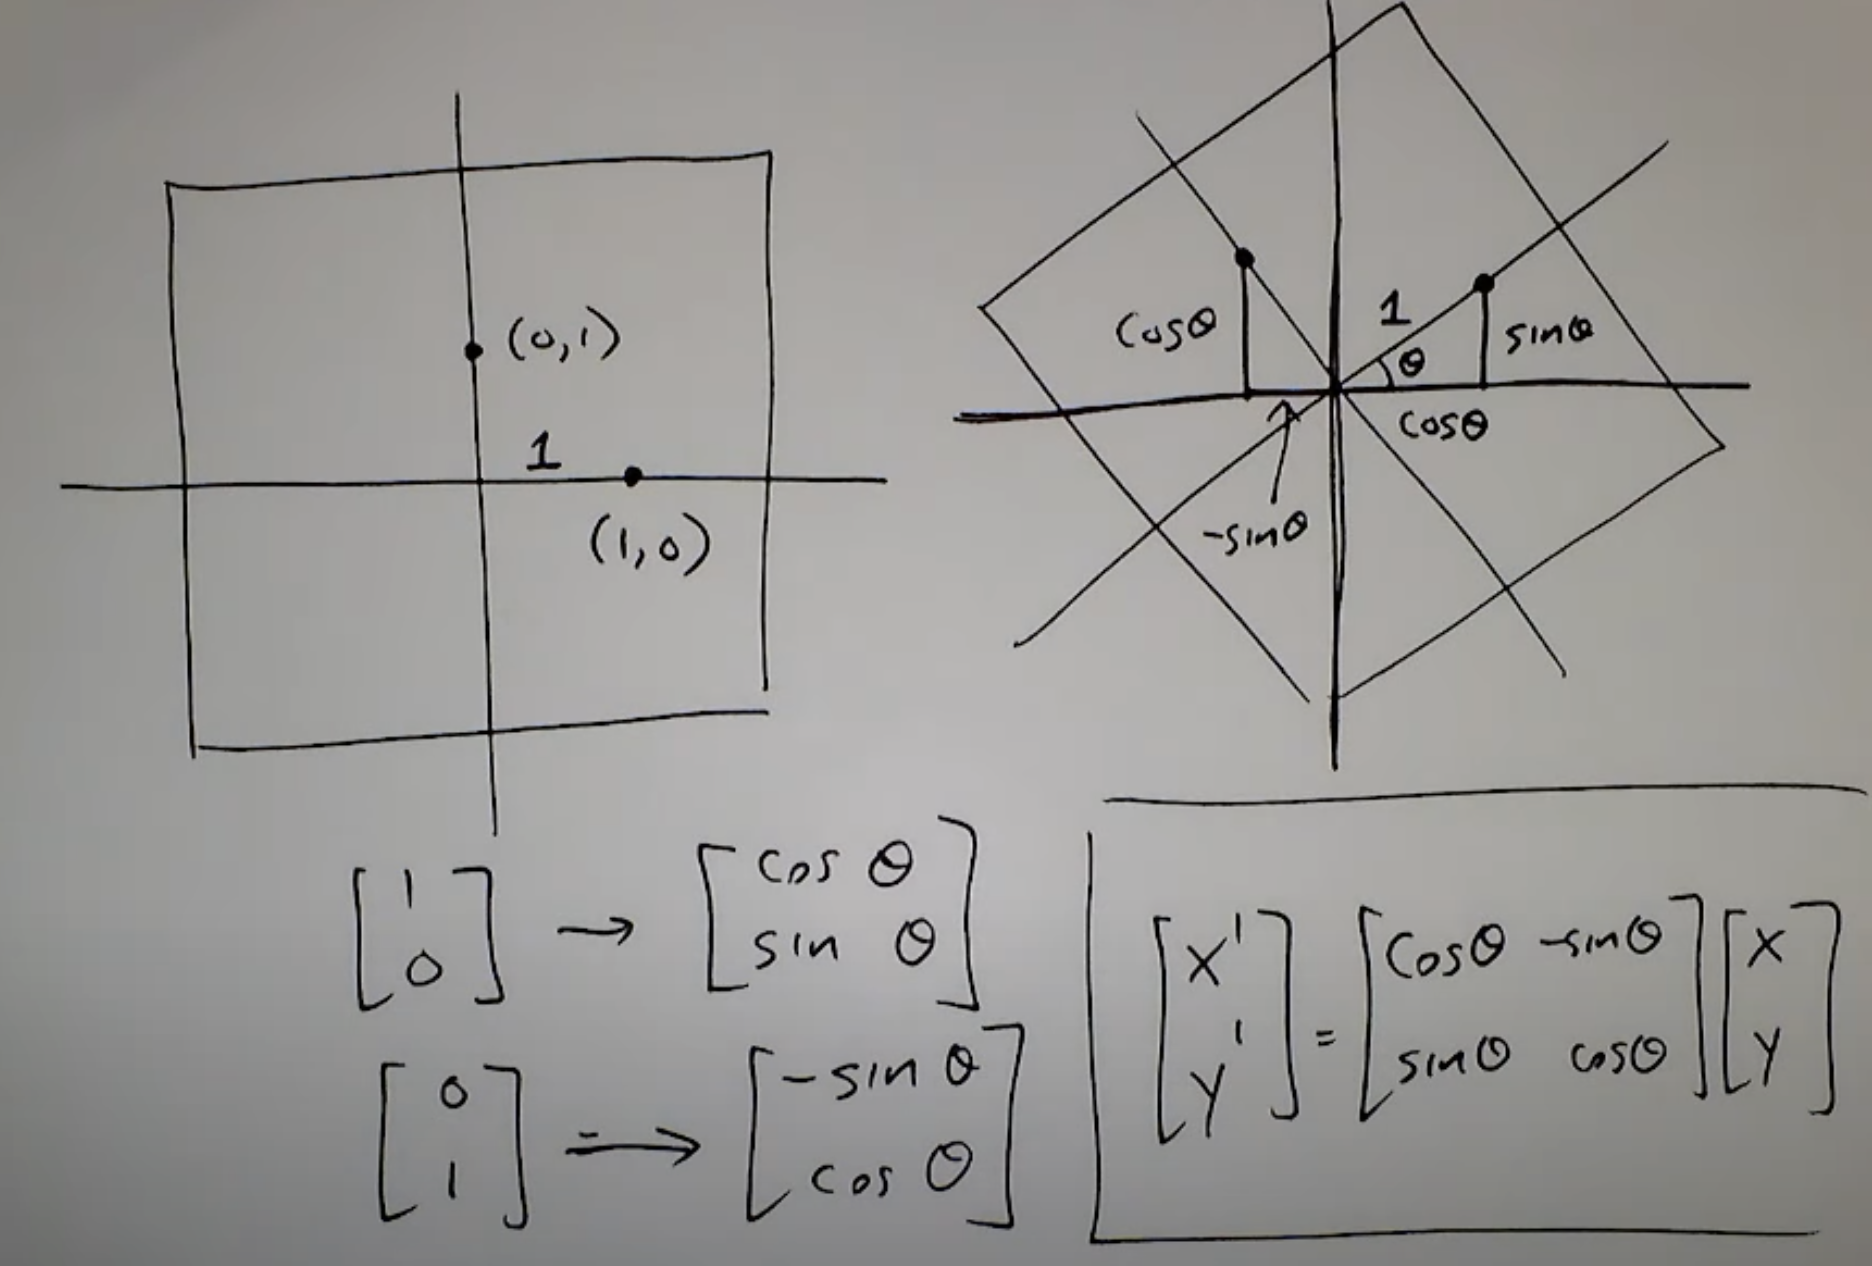 (0,1)
1
(1,0)
1
θ
sinθ
cosθ
cosθ
-sinθ
[1 0] → [cos θ sin θ]
[0 1] → [-sin θ cos θ]
[x' y'] = [cosθ -sinθ sinθ cosθ] [x y]